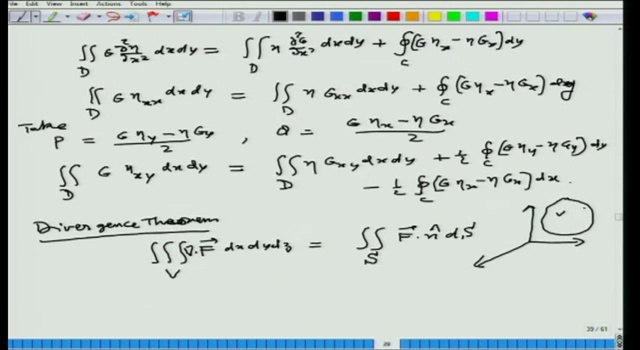 ∬_D G ∂²η/∂x² dx dy = ∬_D η ∂²G/∂x² dx dy + ∮_C (G η_x − η G_x) dy
∬_D G η_xx dx dy = ∬_D η G_xx dx dy + ∮_C (G η_x − η G_x) dy
Take P = (G η_y − η G_y)/2 , Q = (G η_x − η G_x)/2
∬_D G η_xy dx dy = ∬_D η G_xy dx dy + ½ ∮_C (G η_y − η G_y) dy
− ½ ∮_C (G η_x − η G_x) dx.
Divergence Theorem
∭_V ∇·F⃗ dx dy dz = ∬_S F⃗·n̂ dS